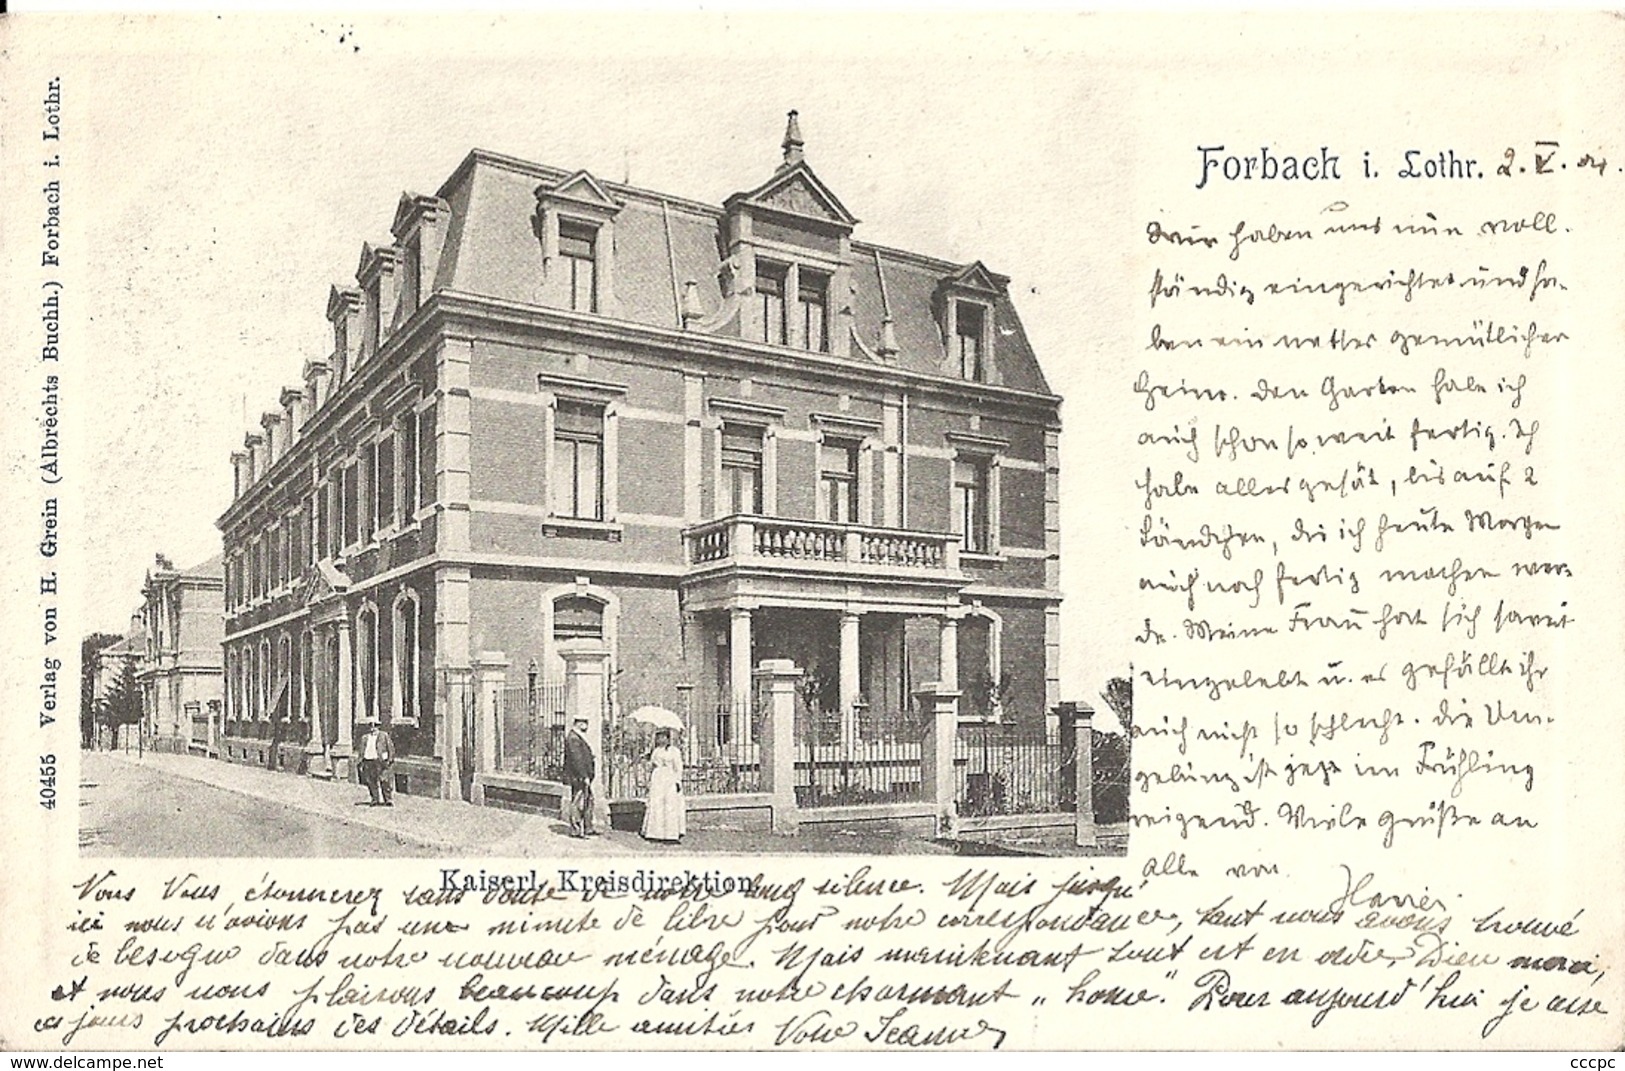 40455 Verlag von H. Grein (Albrechts Buchh.) Forbach i. Lothr.
Forbach i. Lothr. 2. V. 04.
Wir haben uns nun voll-
ständig eingerichtet und ha-
ben ein nettes gemütliches
Heim. Den Garten habe ich
auch schon so weit fertig. Ich
habe alles gesät, bis auf 2
Ländchen, die ich heute Morgen
auch noch fertig machen wer-
de. Meine Frau hat sich soweit
eingelebt u. es gefällt ihr
auch nicht so schlecht. Die Um-
gebung ist jetzt im Frühling
reizend. Viele Grüße an
alle von
Xavier.
Kaiserl. Kreisdirektion.
Vous Vous étonnerez sans doute de notre long silence. Mais jusqu'
ici nous n'avions pas une minute de libre pour notre correspondance, tant nous avons trouvé
de besogne dans notre nouveau ménage. Mais maintenant tout est en ordre, Dieu merci,
et nous nous plaisons beaucoup dans notre charmant „home". Pour aujourd'hui je
ces jours prochains des détails. Mille amitiés Votre Jeanne
delcampe.net
cccpc